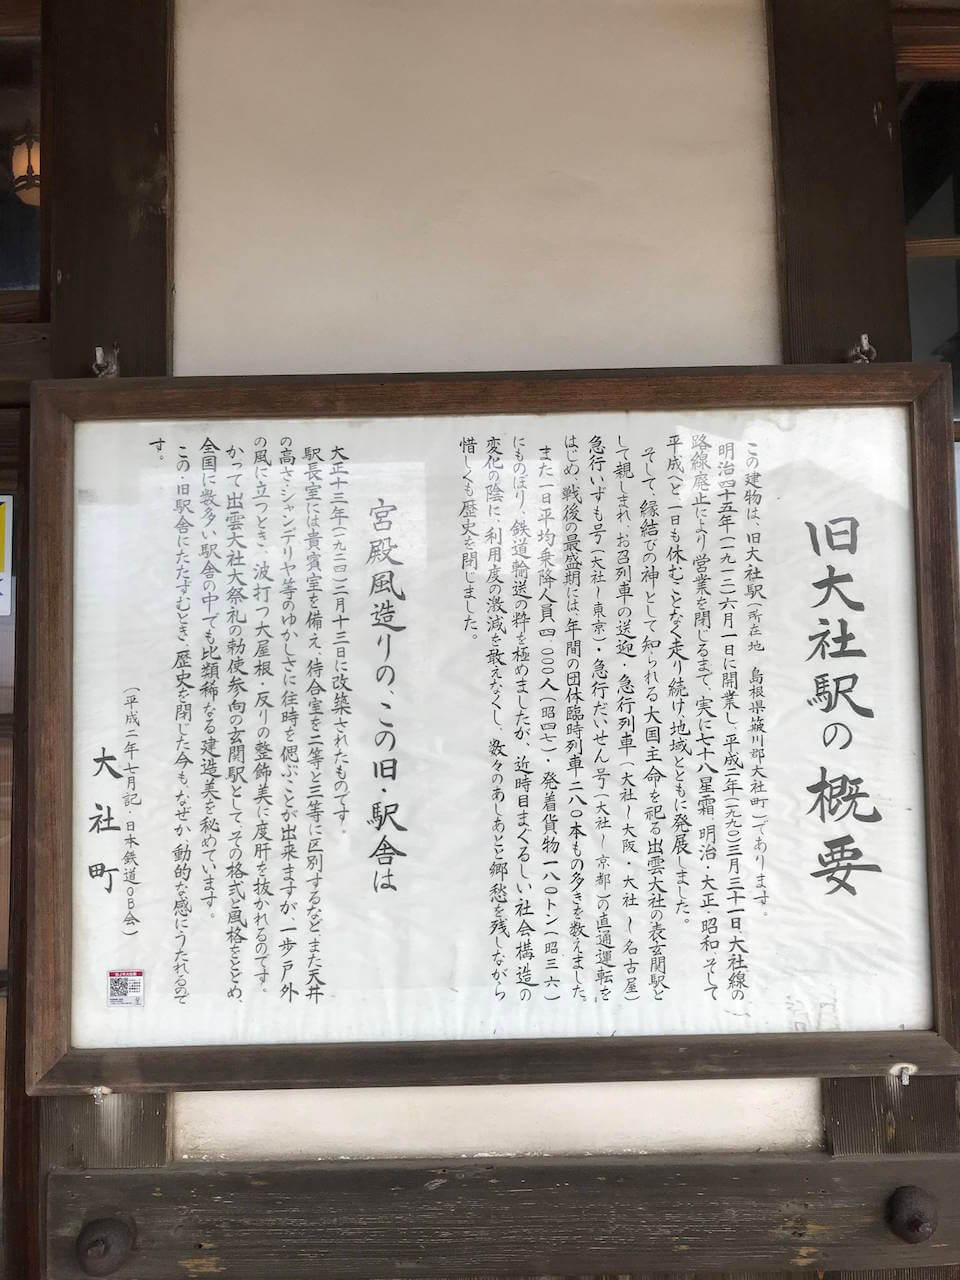 旧大社駅の概要
この建物は、旧大社駅(所在地　島根県簸川郡大社町)であります。
明治四十五年(一九一二)六月一日に開業し、平成二年(一九九〇)三月三十一日、大社線の
路線廃止により営業を閉じるまで、実に七十八星霜、明治・大正・昭和、そして
平成へと一日も休むことなく走り続け、地域とともに発展しました。
そして、縁結びの神として知られる大国主命を祀る出雲大社の表玄関駅と
して親しまれ、お召列車の送迎・急行列車(大社〜大阪・大社〜名古屋)
急行いずも号(大社〜東京)・急行だいせん号(大社〜京都)の直通運転を
はじめ、戦後の最盛期には、年間の団体臨時列車二八〇本もの多きを数えました。
また一日平均乗降人員四、〇〇〇人(昭四七)・発着貨物一八〇トン(昭三六)
にものぼり、鉄道輸送の粋を極めましたが、近時目まぐるしい社会構造の
変化の陰に、利用度の激減を敢えなくし、数々のあしあとと郷愁を残しながら
惜しくも歴史を閉じました。
宮殿風造りの、この旧・駅舎は
大正十三年(一九二四)二月十三日に改築されたものです。
駅長室には貴賓室を備え、待合室を二等と三等に区別するなど、また天井
の高さ・シャンデリヤ等のゆかしさに往時を偲ぶことが出来ますが、一歩戸外
の風に立つとき、波打つ大屋根・反りの整飾美に度肝を抜かれるのです。
かつて出雲大社大祭礼の勅使参向の玄関駅として、その格式と風格をとどめ、
全国に数多い駅舎の中でも比類稀なる建造美を秘めています。
この・旧駅舎にたたずむとき、歴史を閉じた今も、なぜか動的な感にうたれるので
す。
(平成二年七月記・日本鉄道OB会)
大社町